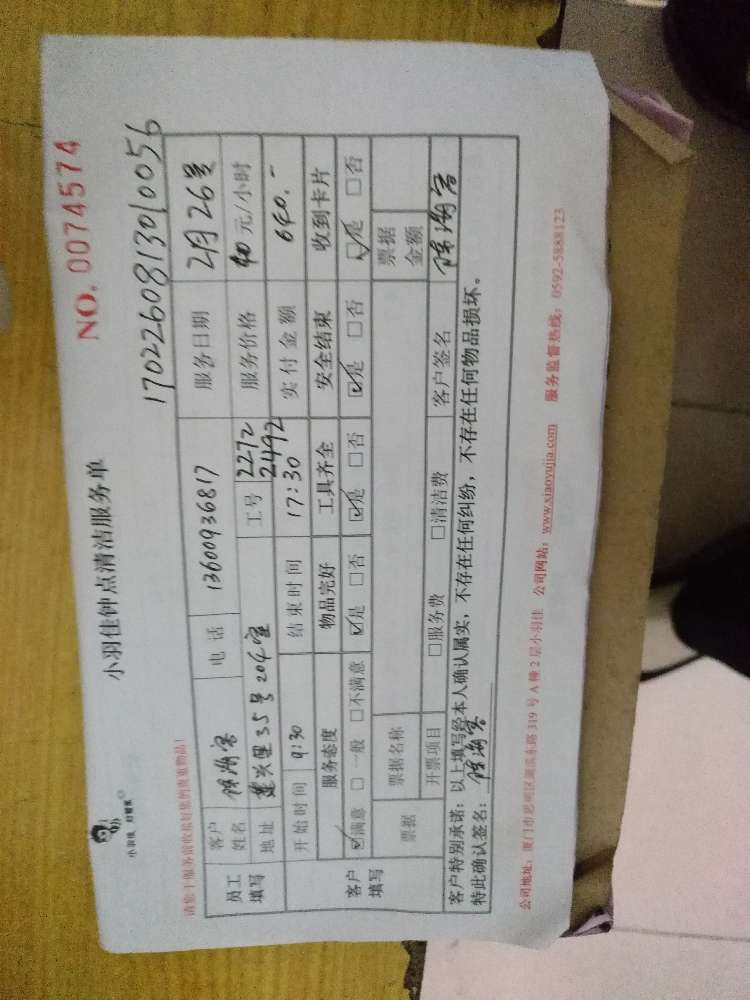 小羽佳 好管家
小羽佳钟点清洁服务单
NO. 0074574
170226081301 0056
请您于服务前收拾好您的贵重物品!
员工填写 客户姓名 电话 13600936817 服务日期 2月26号
地址 建兴里35号204室 工号 2272 2492 服务价格 40元/小时
开始时间 9:30 结束时间 17:30 实付金额 640.-
客户填写 服务态度 物品完好 工具齐全 安全结束 收到卡片
☑满意 □一般 □不满意 ☑是 □否 ☑是 □否 ☑是 □否 ☑是 □否
票据 票据名称 票据金额
开票项目 □服务费 □清洁费 客户签名
客户特别承诺:以上填写经本人确认属实,不存在任何纠纷,不存在任何物品损坏。
特此确认签名:
公司地址:厦门市思明区湖滨东路319号A幢2层小羽佳 公司网站:www.xiaoyujia.com 服务监督热线:0592-5888123